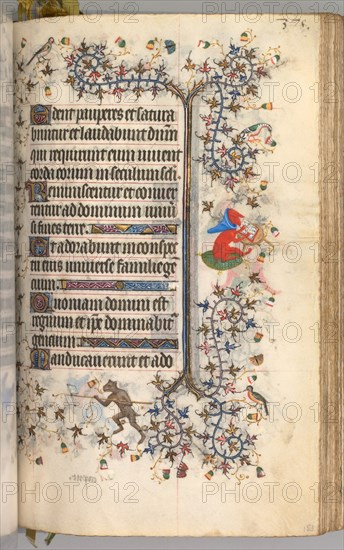 Edent pauperes et satura
buntur et laudabunt dnm
qui requirunt eum vivent
corda eorum in seculum scli
Reminiscentur et conver
tentur ad dominum uni
si fines terre
Et adorabunt in conspec
tu eius universe familie ge
cium
Quoniam domini est
regnum et ipse dominabit
gencium
Manducaverunt et ado